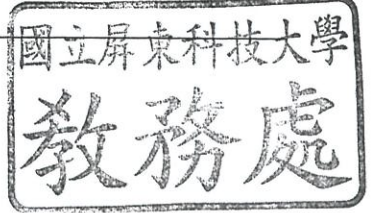 國立屏東科技大學
教務處